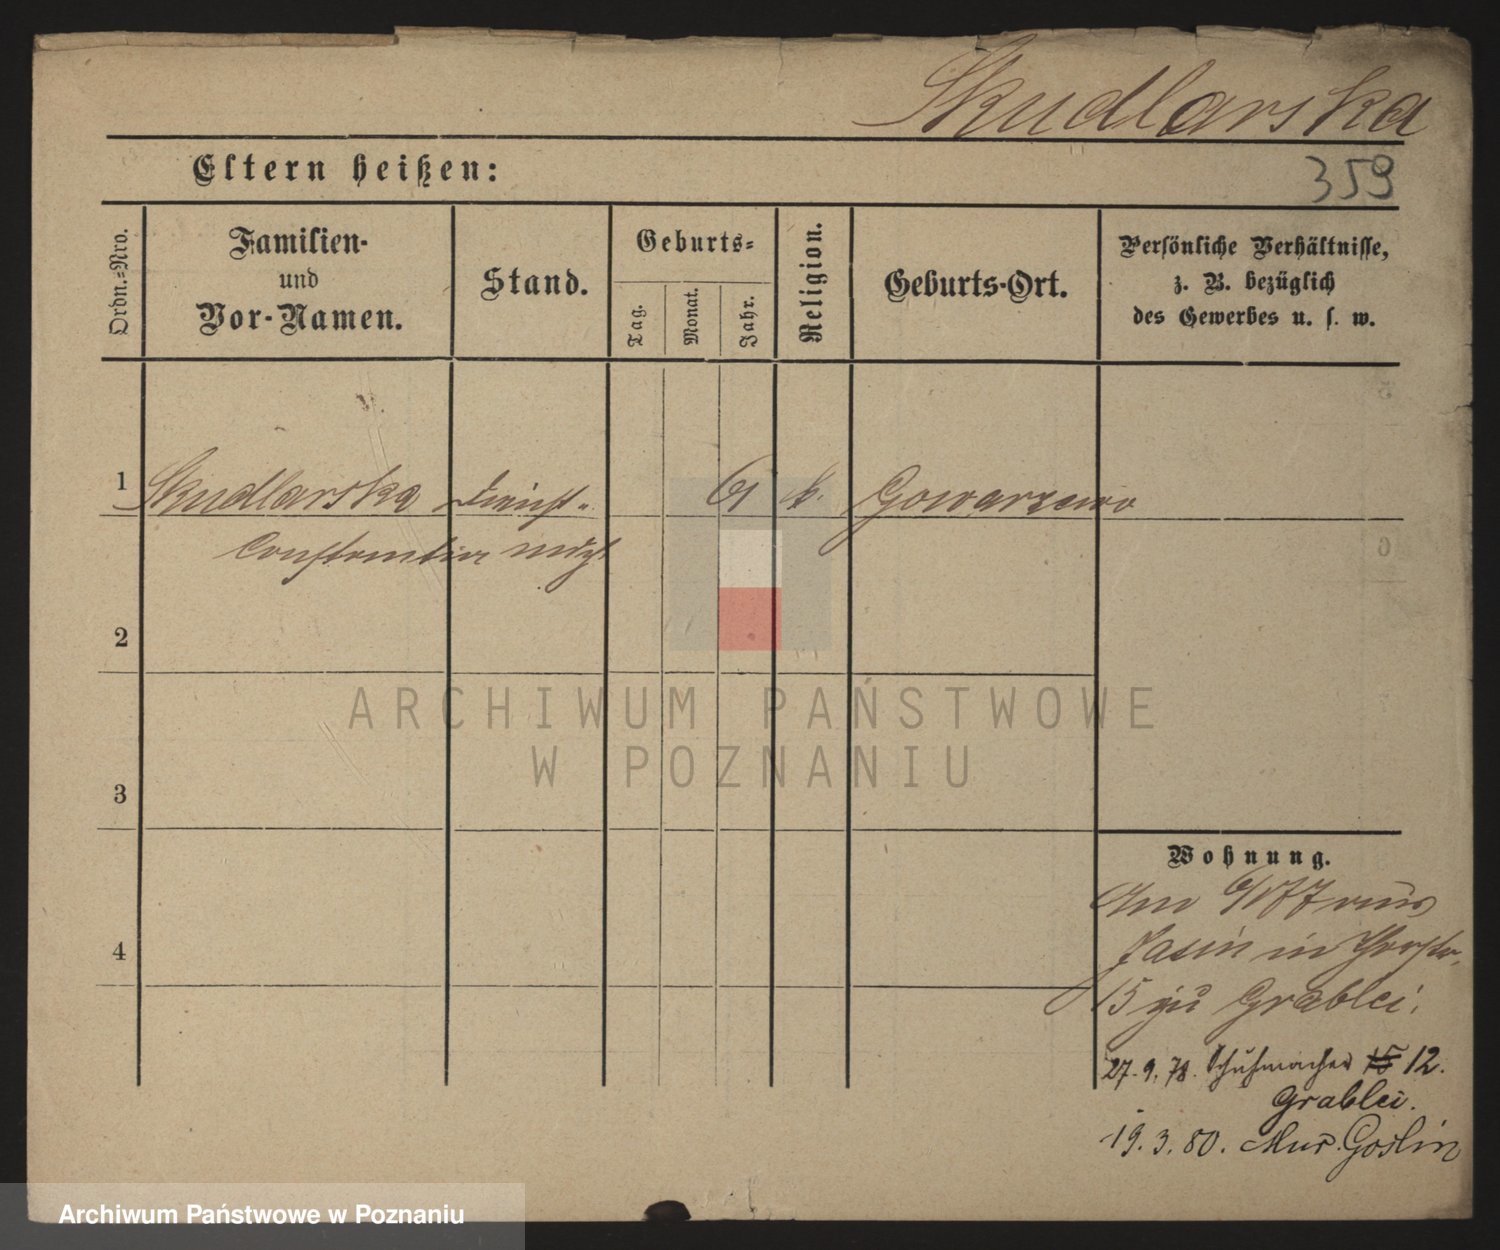 Skudlarska
359
Eltern heißen:
Ordn.-Nro.
Familien-
und
Vor-Namen.
Stand.
Geburts-
Tag.
Monat.
Jahr.
Religion.
Geburts-Ort.
Persönliche Verhältnisse,
z. B. bezüglich
des Gewerbes u. s. w.
1 Skudlarska Dienst- 61 k. Gowarzewo
2
3
4
ARCHIWUM PAŃSTWOWE
W POZNANIU
Wohnung.
Jasin in
15 zu Grablei.
27.9.78. Schuhmacher 15 12.
Grablei.
19.3.80. Mur. Goslin
Archiwum Państwowe w Poznaniu